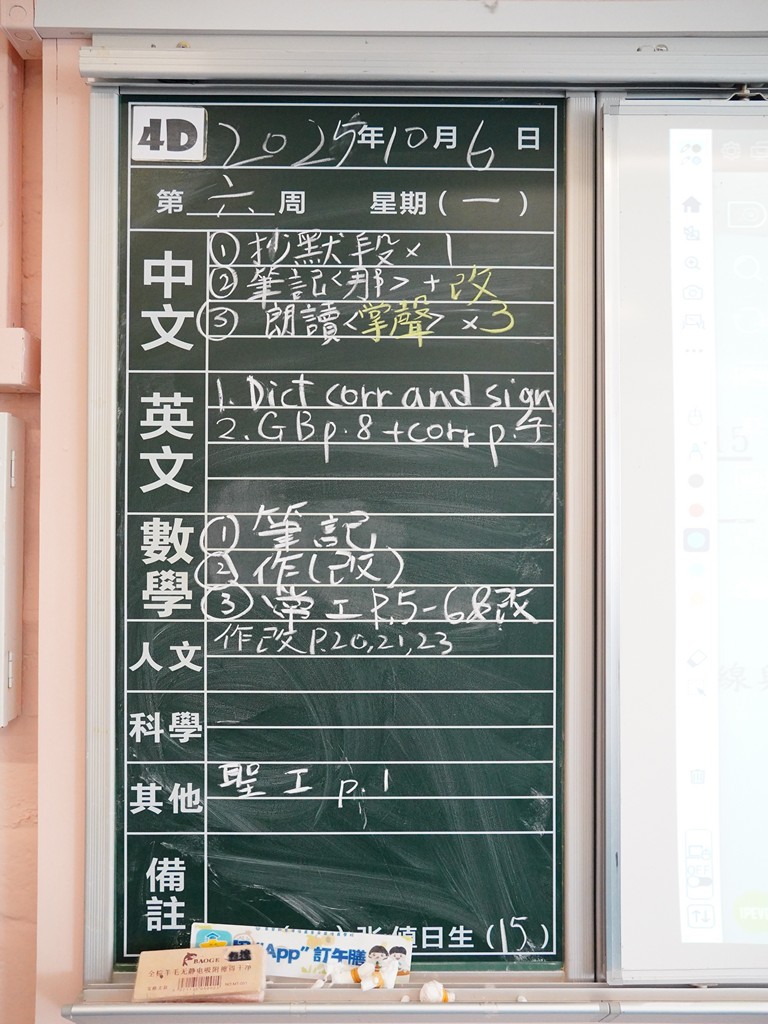 4D 2025年10月6日
第六周 星期(一)
中文
①抄默段×1
②筆記<那>+改
③朗讀<掌聲>×3
英文
1. Dict corr and sign
2. GB p.8 + corr p.4
數學
①筆記
②作(改)
③常工P.5-6&改
人文
作改P.20,21,23
科學
其他
聖工 p.1
備註
值日生(15)
"App"訂午膳
BAOGE